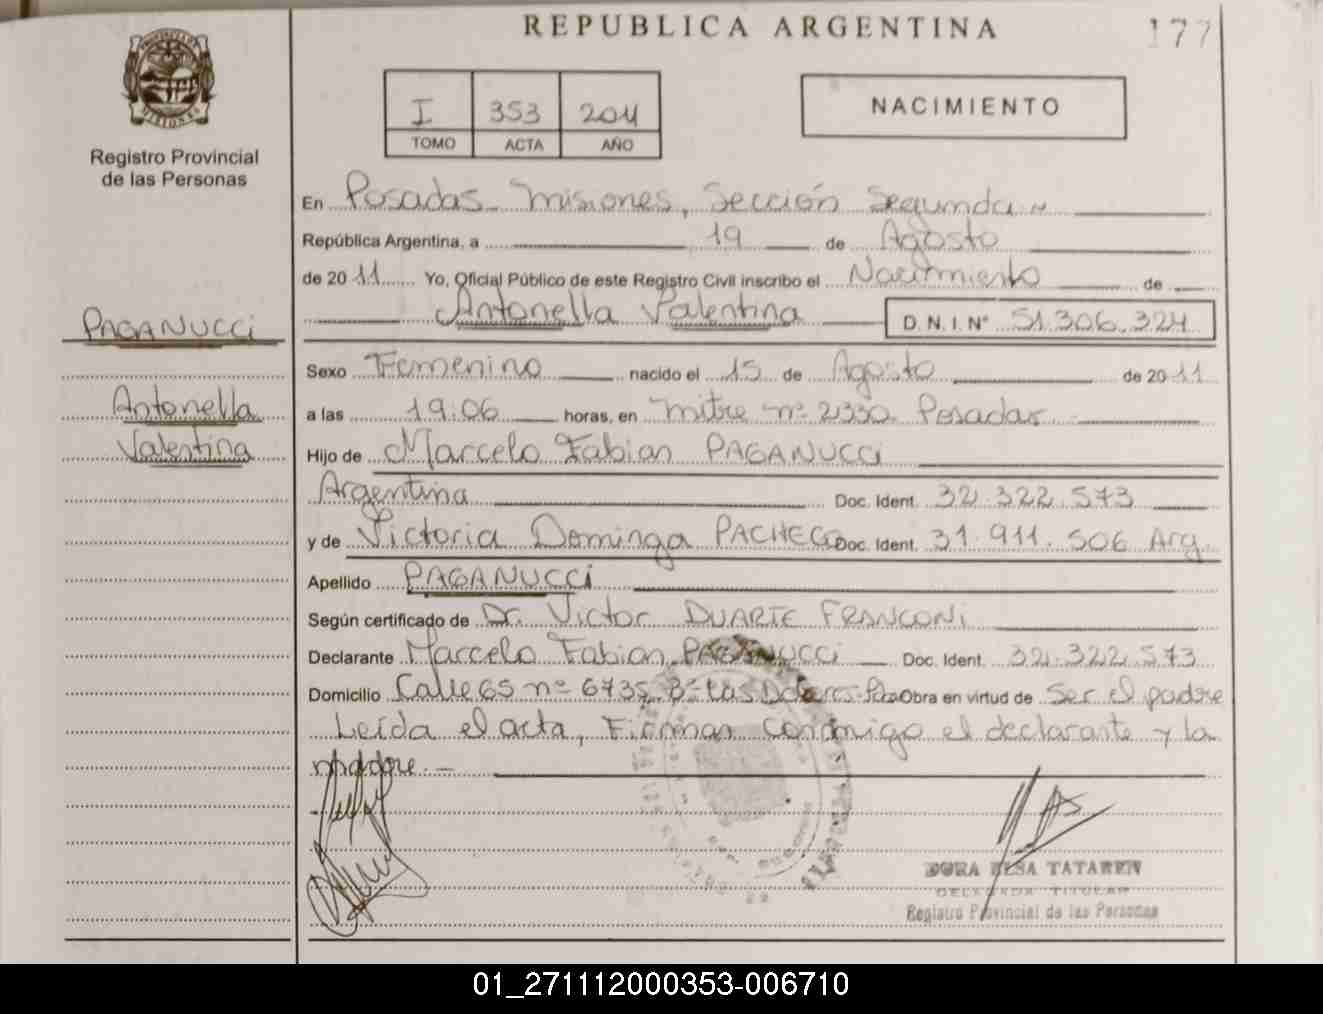 REPUBLICA ARGENTINA
177
PROVINCIA DE
MISIONES
Registro Provincial
de las Personas
I 353 2011
TOMO ACTA AÑO
NACIMIENTO
En Posadas - Misiones, Sección Segunda
República Argentina, a 19 de Agosto
de 2011 Yo, Oficial Público de este Registro Civil inscribo el Nacimiento de
Antonella Valentina D. N. I. N° 51.306.324
PAGANUCCI
Antonella
Valentina
Sexo Femenino nacido el 15 de Agosto de 2011
a las 19:06 horas, en Mitre nº 2330 Posadas
Hijo de Marcelo Fabian PAGANUCCI
Argentina Doc. Ident. 32.322.573
y de Victoria Dominga PACHECO Doc. Ident. 31.911.506 Arg.
Apellido PAGANUCCI
Según certificado de Dr. Victor DUARTE FRANCONI
Declarante Marcelo Fabian PAGANUCCI Doc. Ident. 32.322.573
Domicilio Calle 65 nº 6735 Bº Las Dolores - Pdas Obra en virtud de Ser el padre
Leída el acta, Firman conmigo el declarante y la
madre. -
DORA ELSA TATAREN
DELEGADA TITULAR
Registro Provincial de las Personas
01_271112000353-006710